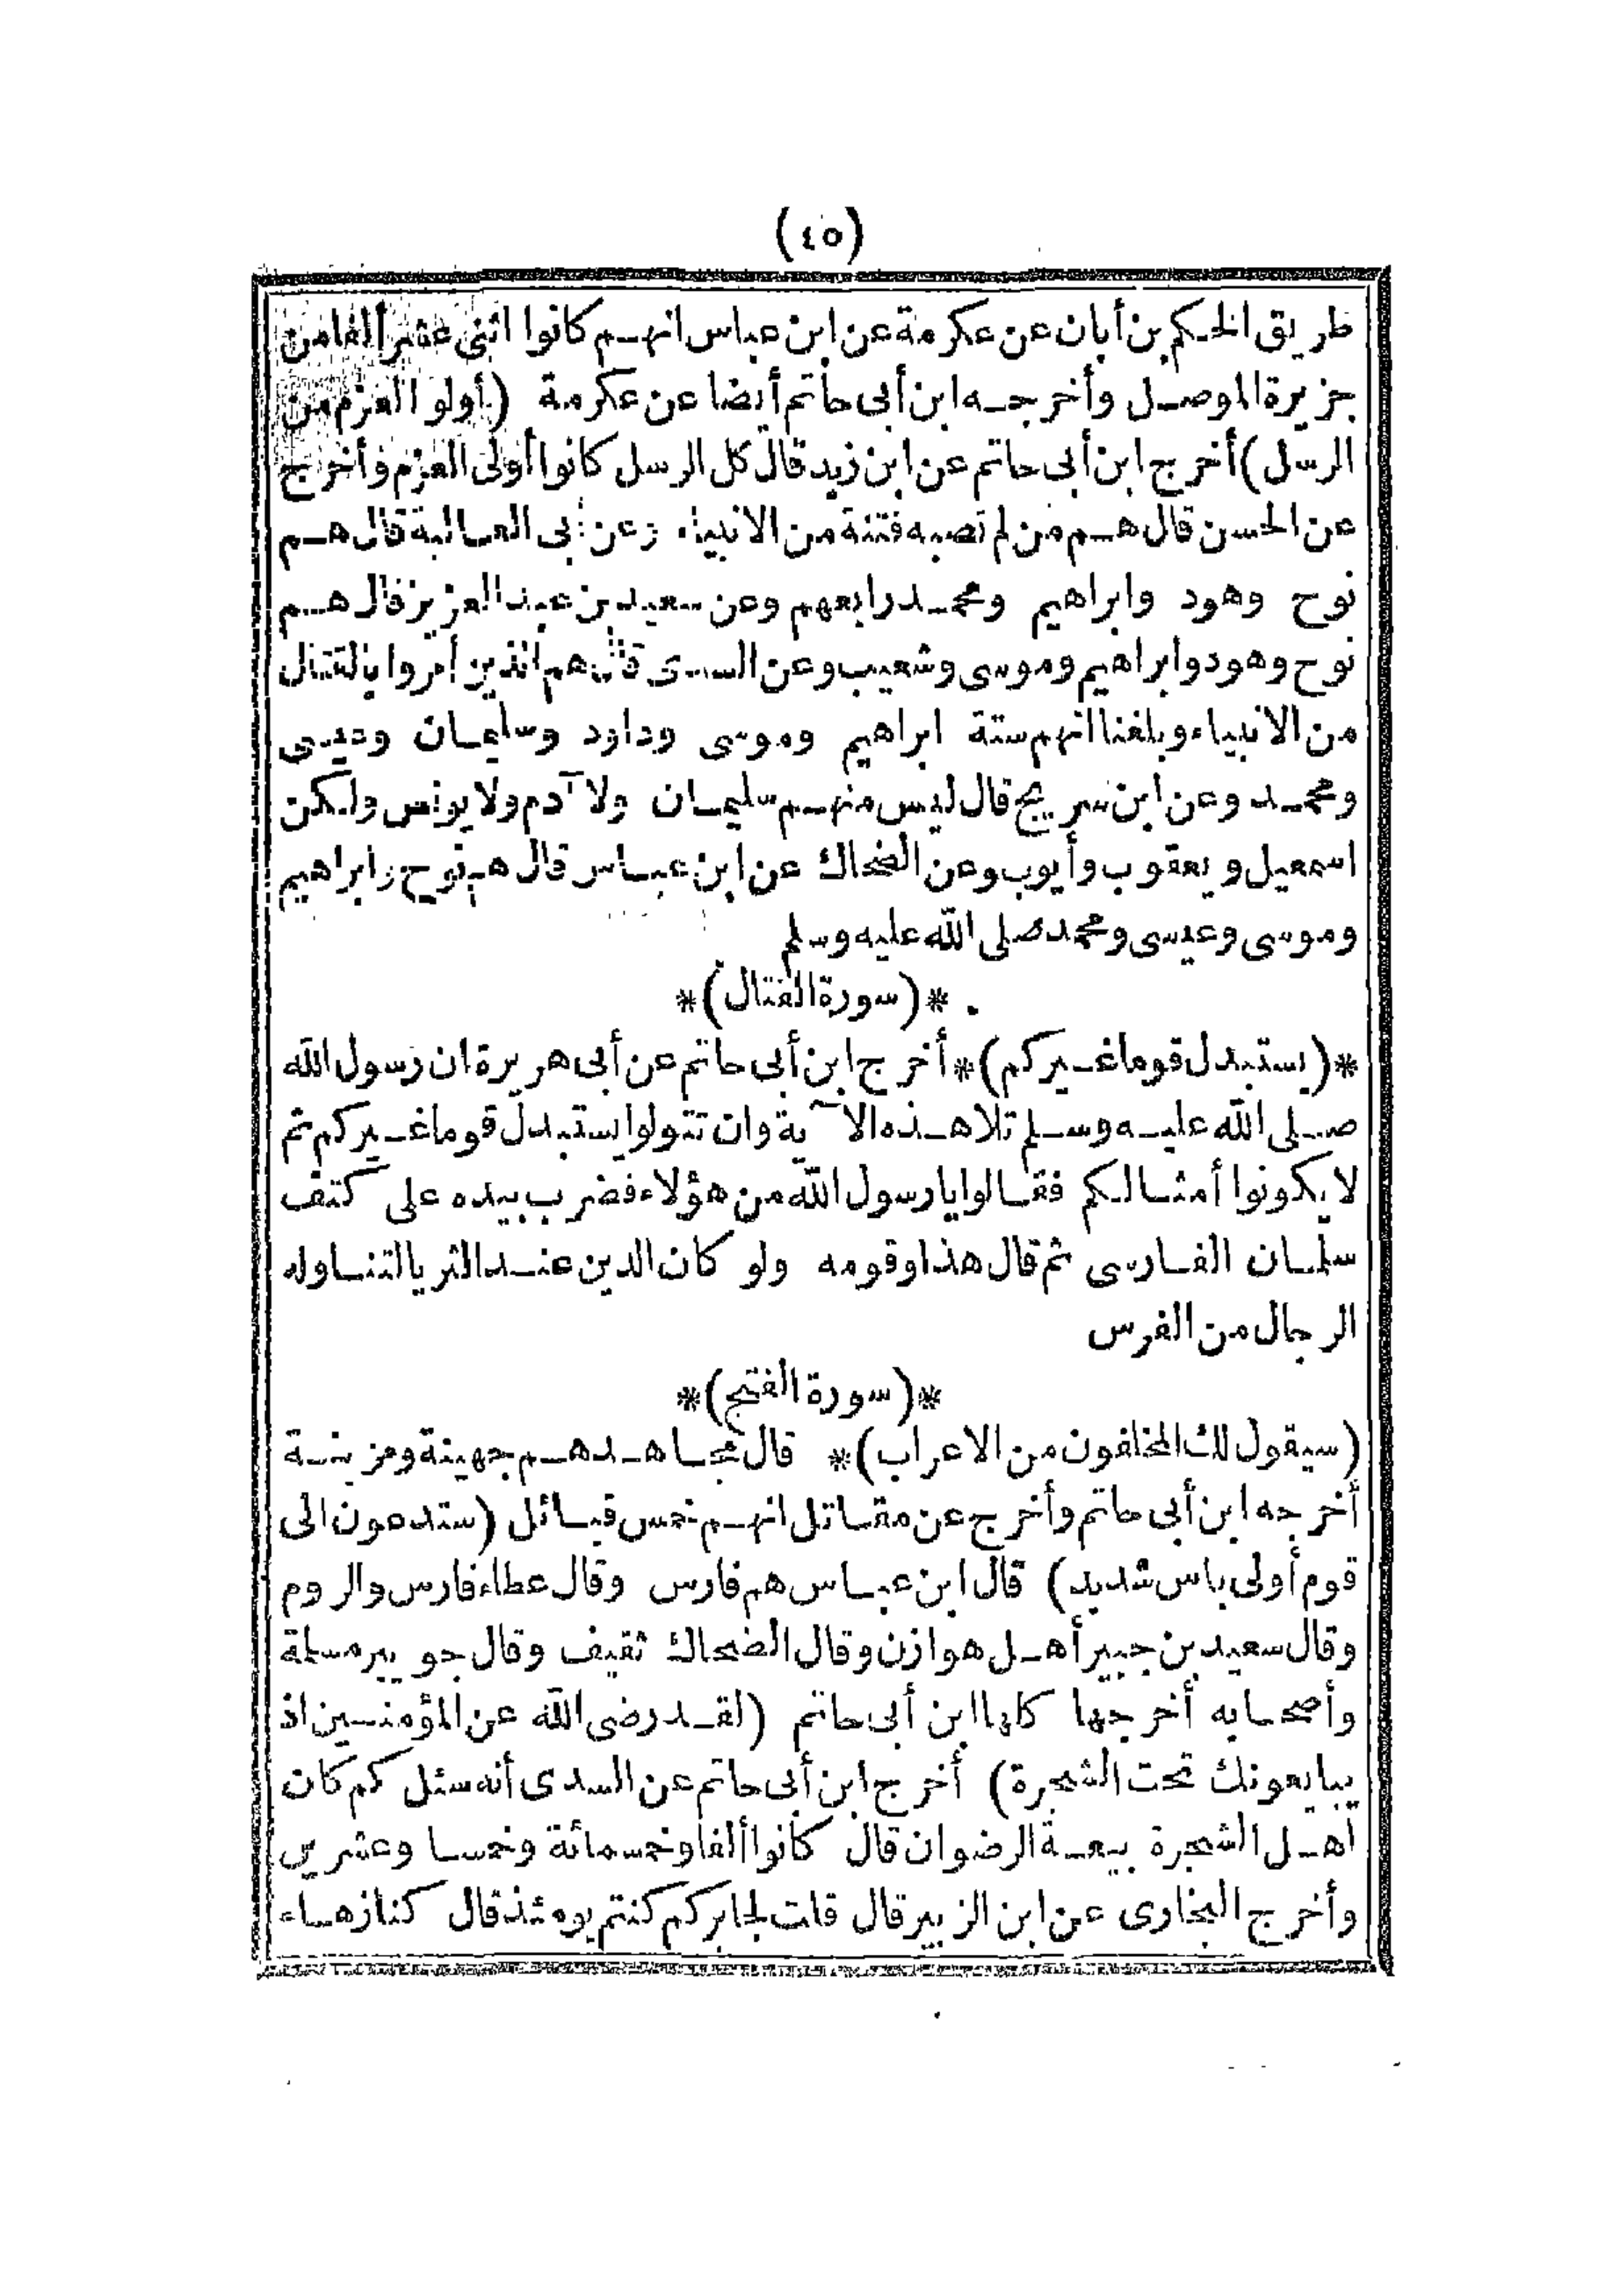 (٤٥)
طريق الحكم بن أبان عن عكرمة عن ابن عباس انهم كانوا اثنى عشر ألفا من
جزيرة الموصل وأخرجه ابن أبى حاتم أيضا عن عكرمة (أولو العزم من
الرسل) أخرج ابن أبى حاتم عن ابن زيد قال كل الرسل كانوا أولى العزم وأخرج
عن الحسن قال هم من لم تصبه فتنة من الانبياء وعن أبى العالية قال هم
نوح وهود وابراهيم ومحمد رابعهم وعن سعيد بن عبد العزيز قال هم
نوح وهود وابراهيم وموسى وشعيب وعن السدى قال هم الذين أمروا بالقتال
من الانبياء وبلغنا انهم ستة ابراهيم وموسى وداود وسليمان وعيسى
ومحمد وعن ابن سريج قال ليس منهم سليمان ولا آدم ولا يونس ولكن
اسمعيل ويعقوب وأيوب وعن الضحاك عن ابن عباس قال هم نوح وابراهيم
وموسى وعيسى ومحمد صلى الله عليه وسلم
*(سورة القتال)*
*(يستبدل قوما غيركم)* أخرج ابن أبى حاتم عن أبى هريرة ان رسول الله
صلى الله عليه وسلم تلا هذه الآية وان تتولوا يستبدل قوما غيركم ثم
لا يكونوا أمثالكم فقالوا يا رسول الله من هؤلاء فضرب بيده على كتف
سلمان الفارسى ثم قال هذا وقومه ولو كان الدين عند الثريا لتناوله
الرجال من الفرس
*(سورة الفتح)*
(سيقول لك المخلفون من الاعراب)* قال مجاهد هم جهينة ومزينة
أخرجه ابن أبى حاتم وأخرج عن مقاتل انهم خمس قبائل (ستدعون الى
قوم أولى باس شديد) قال ابن عباس هم فارس وقال عطاء فارس والروم
وقال سعيد بن جبير أهل هوازن وقال الضحاك ثقيف وقال جويبر مسيلمة
وأصحابه أخرجها كلها ابن أبى حاتم (لقد رضى الله عن المؤمنين اذ
يبايعونك تحت الشجرة) أخرج ابن أبى حاتم عن السدى أنه سئل كم كان
أهل الشجرة بيعة الرضوان قال كانوا ألفا وخمسمائة وخمسا وعشرين
وأخرج البخارى عن ابن الزبير قال قلت لجابر كم كنتم يومئذ قال كنا زهاء